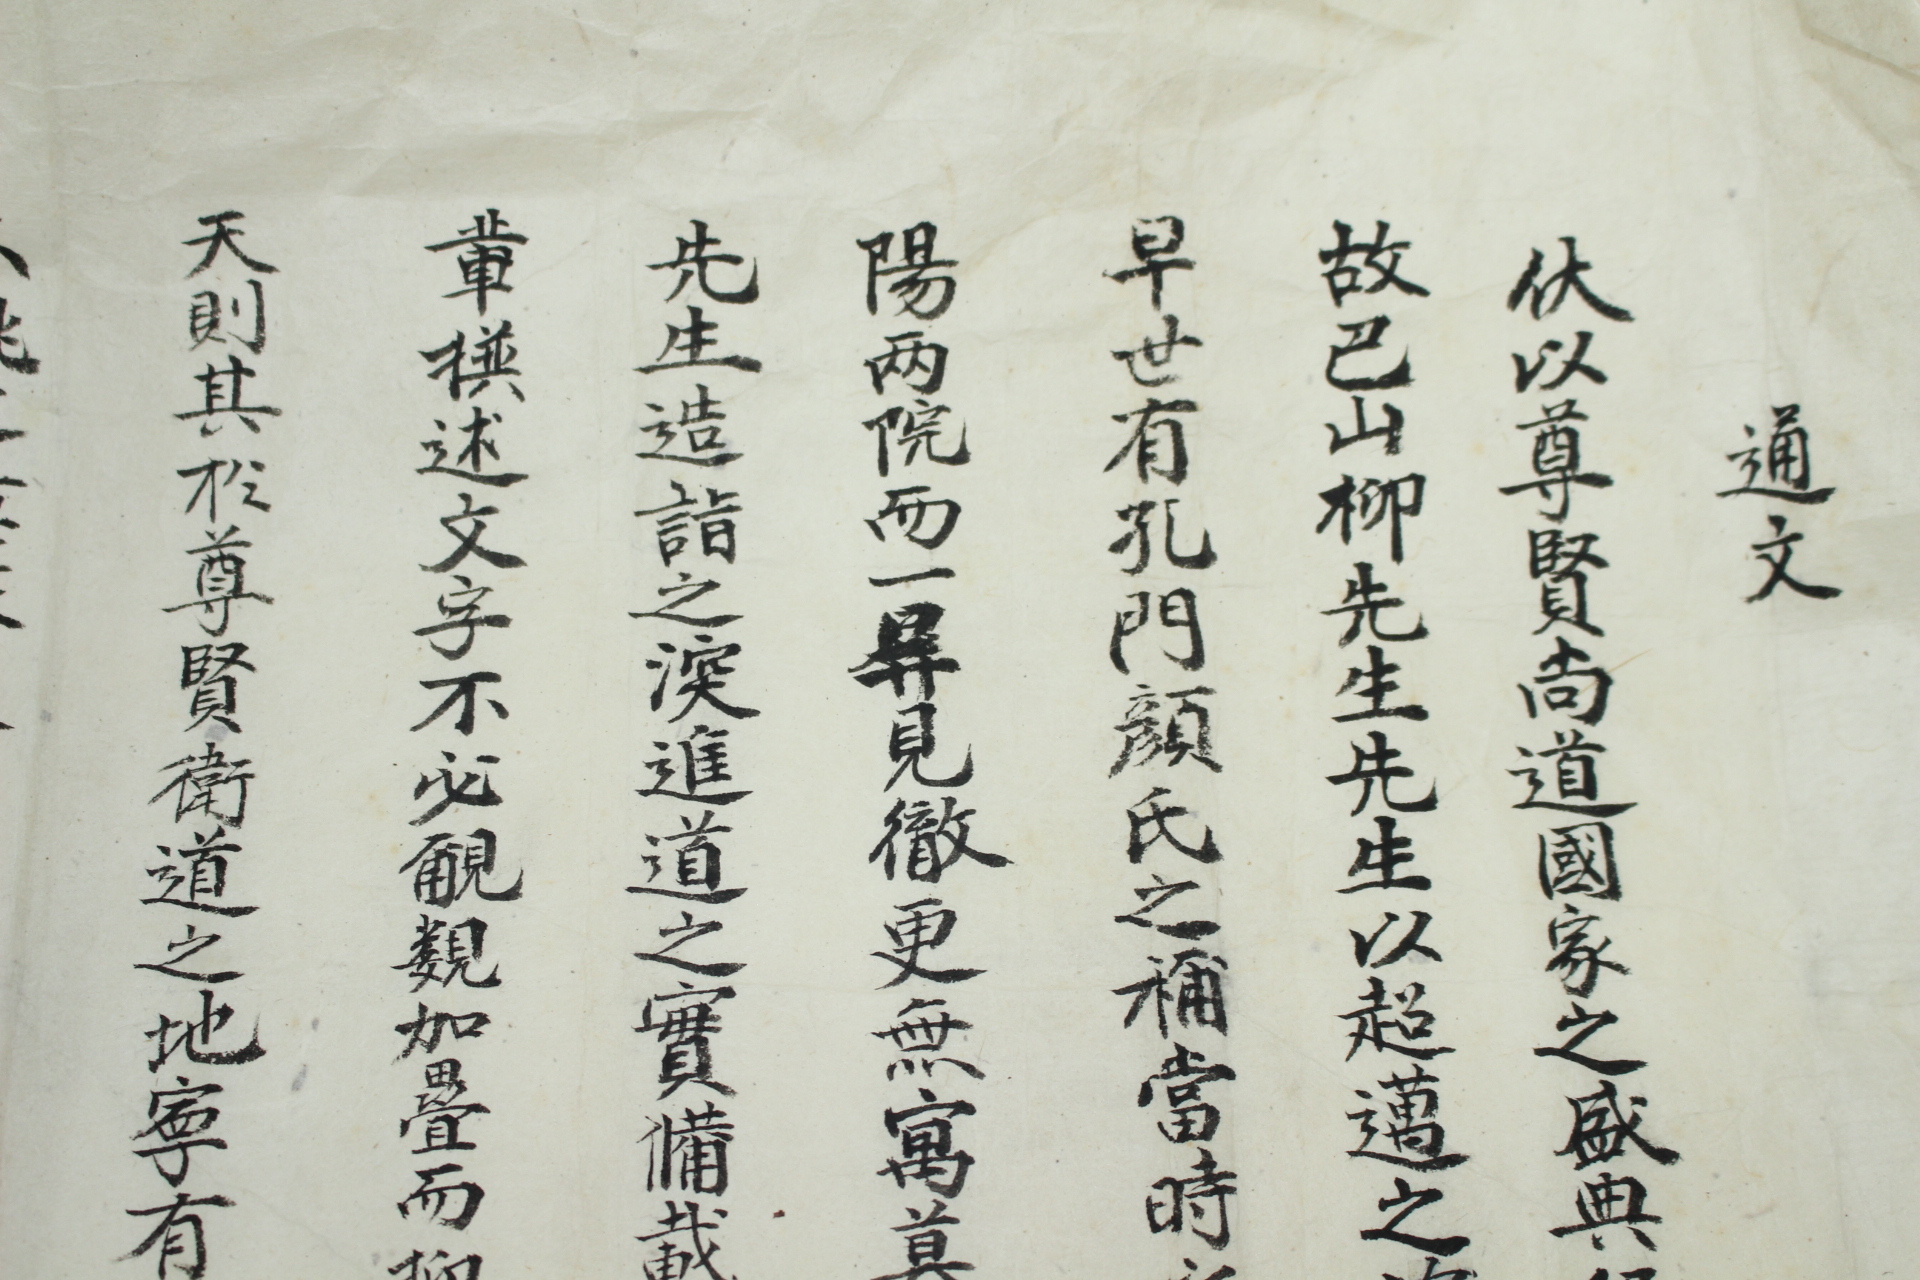 通文
伏以尊賢尚道國家之盛典
故巴山柳先生先生以超邁之
早世有孔門顔氏之稱當時
陽兩院而一畀見徹更無寓莫
先生造詣之深進道之實備載
輩撰述文字不必覼覼加疊而抑
天則其於尊賢衛道之地寧有